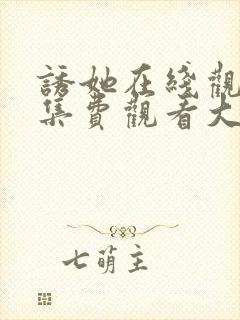 誘她在綫觀
集費觀看大
七萌主